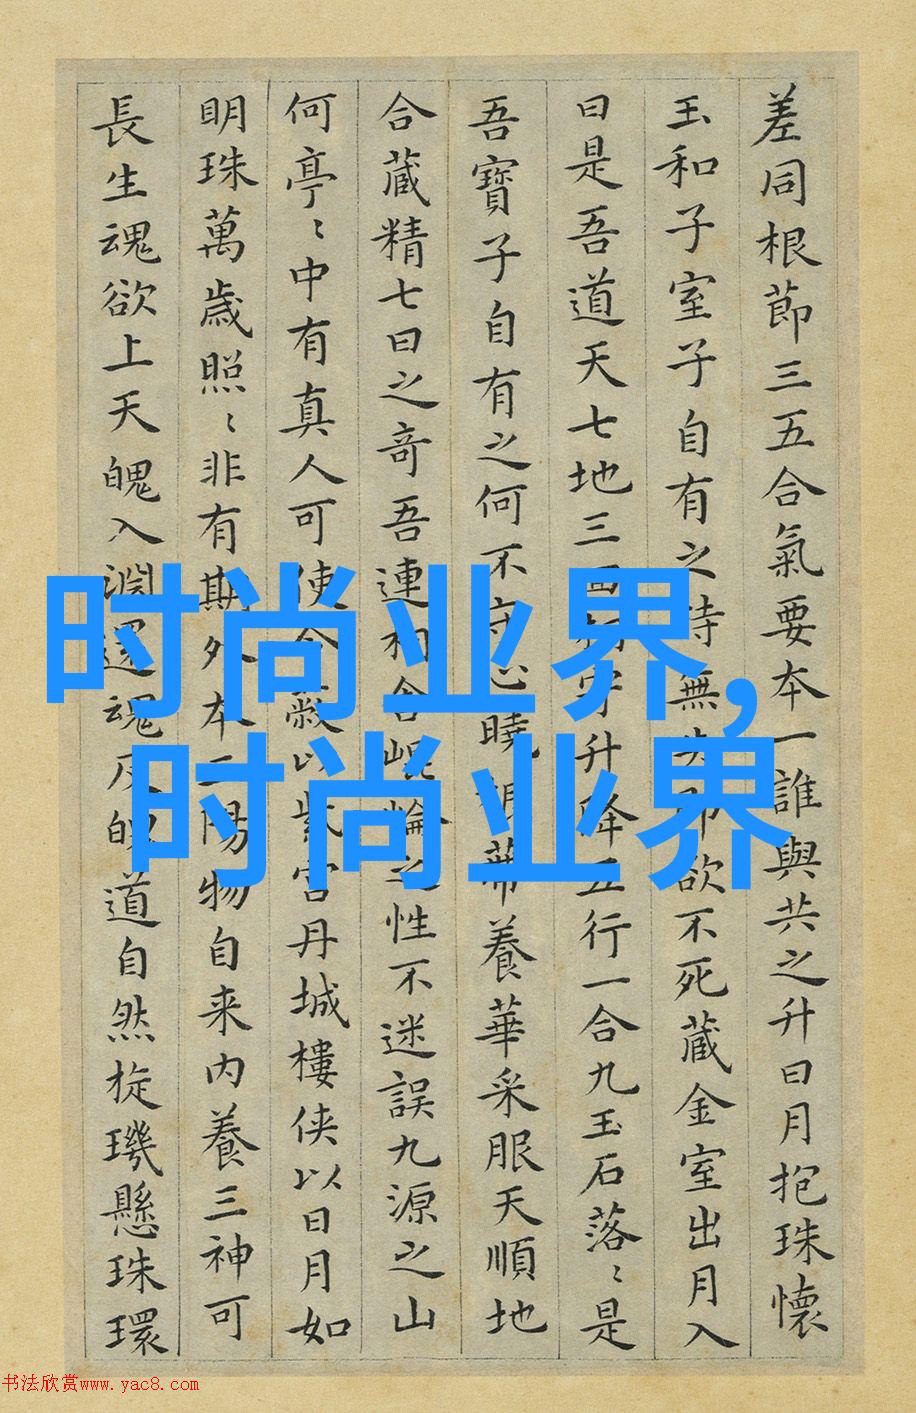 差同根節三五合氣要本一誰與共之升日月抱珠懷
玉和子室子自有之持無失即欲不死藏金室出月入
日是吾道天七地三回相守升降五行一合九玉石落〻是
吾寶子自有之何不守心曉根蒂養華采服天順地
合藏精七日之奇吾連相合崐崘之性不迷誤九源之山
何亭〻中有真人可使令蔽以紫宮丹城樓俠以日月如
明珠萬歲照〻非有期外本二陽物自来內養三神可
長生魂欲上天魄入淵還魂反魄道自然旋璣懸珠環
时尚业界,
时尚业界
书法欣赏www.yac8.com